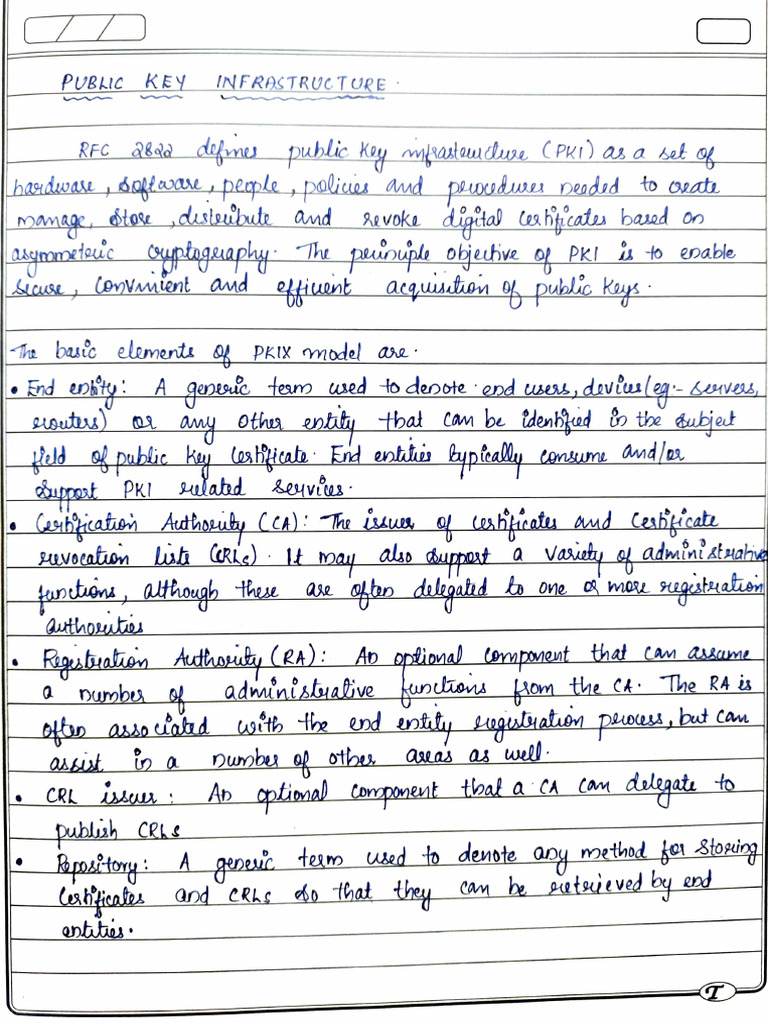 PUBLIC KEY INFRASTRUCTURE.
RFC 2822 defines public key infrastructure (PKI) as a set of
hardware, software, people, policies and procedures needed to create
manage, store, distribute and revoke digital certificates based on
asymmetric cryptography. The principle objective of PKI is to enable
secure, convinient and efficient acquisition of public keys.
The basic elements of PKIX model are.
• End entity: A generic term used to denote end users, devices (eg:- servers,
routers) or any other entity that can be identified in the subject
field of public key certificate. End entities typically consume and/or
support PKI related services.
• Certification Authority (CA): The issuer of certificates and certificate
revocation lists (CRLs). It may also support a variety of administrative
functions, although these are often delegated to one or more registration
authorities
• Registration Authority (RA): An optional component that can assume
a number of administrative functions from the CA. The RA is
often associated with the end entity registration process, but can
assist in a number of other areas as well.
• CRL issuer: An optional component that a CA can delegate to
publish CRLs
• Repository: A generic term used to denote any method for storing
certificates and CRLs so that they can be retrieved by end
entities.
T